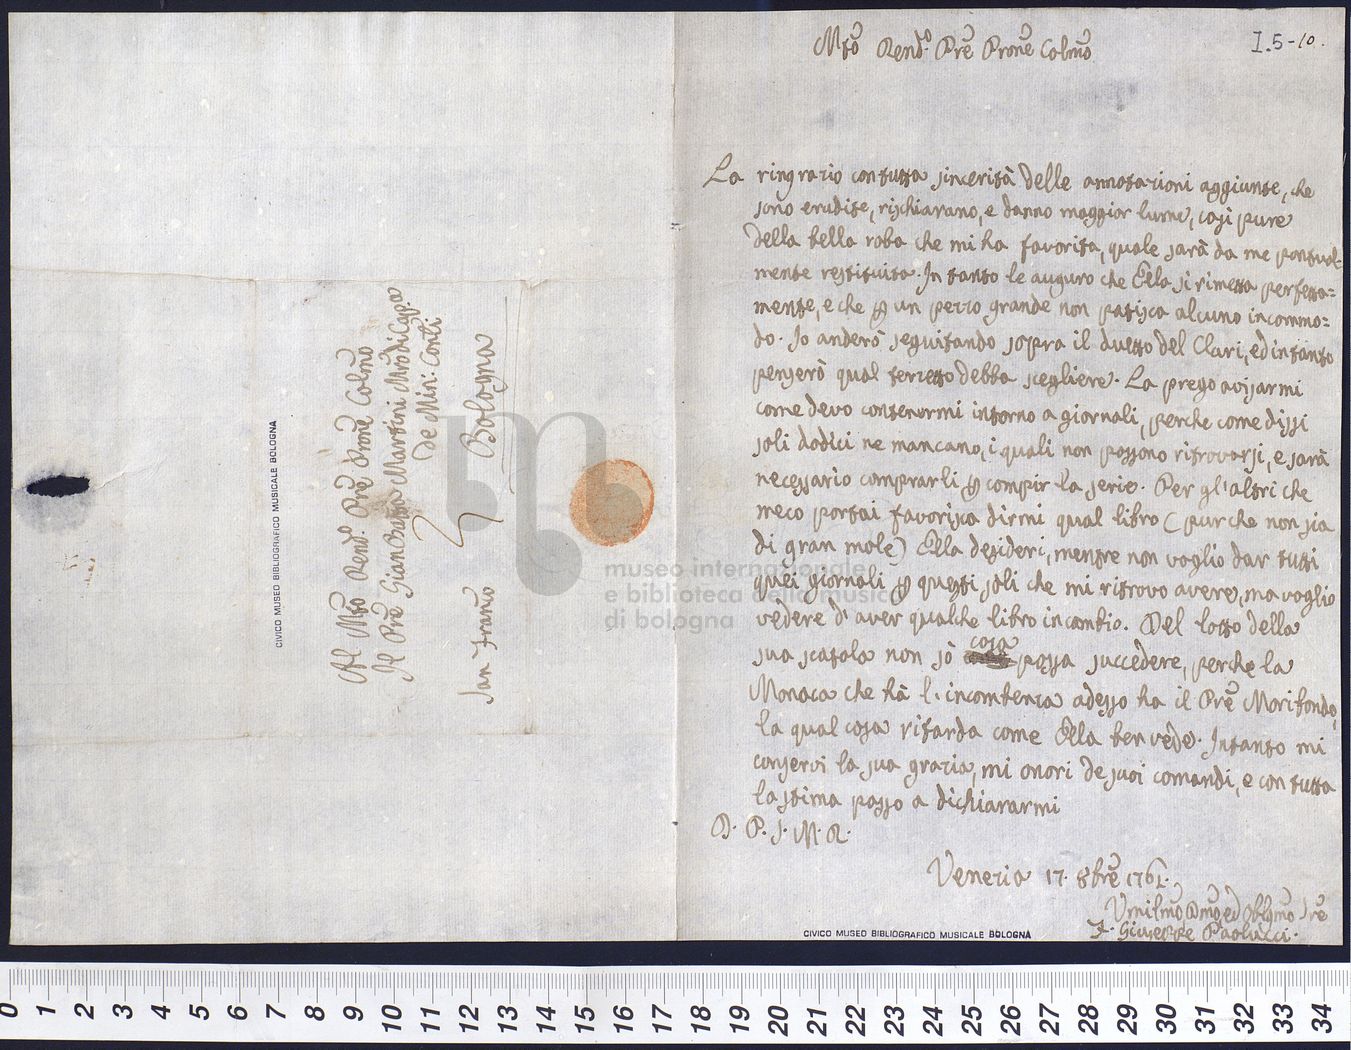 I.5-10.
Mtõ Rend.º Prẽ Prone Colmõ
La ringrazio con tutta sincerità delle annotazioni aggiunte, che
sono erudite, rischiarano, e danno maggior lume, così pure
della bella roba che mi ha favorita, quale sarà da me pontual-
mente restituita. In tanto le auguro che Ella si rimetta perfetta=
mente, e che p un pezzo grande non patisca alcuno incommo=
do. Io anderò seguitando sopra il duetto del Clari, ed intanto
penserò qual terzetto debba scegliere. La prego avisarmi
come devo contenermi intorno a giornali, perche come dissi
soli dodici ne mancano, i quali non possono ritrovarsi, e sarà
necessario comprarli p compir la serie. Per gl'altri che
meco portai favorisca dirmi qual libro (pur che non sia
di gran mole) Ella desideri, mentre non voglio dar tutti
quei giornali p questi soli che mi ritrovo avere, ma voglio
vedere d'aver qualche libro in cambio. Del lotto della
sua scatola non sò cosa possa succedere, perche la
Monaca che hà l'incombenza adesso ha il Prẽ Moribondo,
la qual cosa ritarda come Ella ben vede. Intanto mi
conservi la sua grazia, mi onori de suoi comandi, e con tutta
la stima passo a dichiararmi
D. P. S. M. R.
Venezia 17. 8brẽ 1761.
Vmilmõ Dmo, ed Obblgmo Srẽ
F. Giuseppe Paolucci.
CIVICO MUSEO BIBLIOGRAFICO MUSICALE BOLOGNA
Al Mtõ Rend.º Prẽ Prone Colmõ
Il Prẽ Gian Batta Martini Mrõ di Capa
de Min: Conti
San Franco Bologna
CIVICO MUSEO BIBLIOGRAFICO MUSICALE BOLOGNA
museo internazionale
e biblioteca della musica
di bologna
0 1 2 3 4 5 6 7 8 9 10 11 12 13 14 15 16 17 18 19 20 21 22 23 24 25 26 27 28 29 30 31 32 33 34